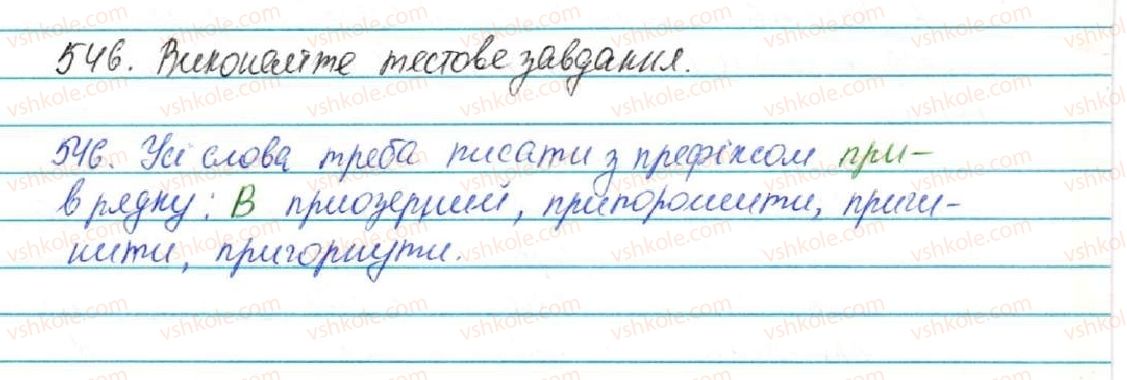 546. Виконайте тестове завдання.
546. Усі слова треба писати з префіксом при-
в рядку: В приозерний, припорошити, причи-
нити, пригорнути.